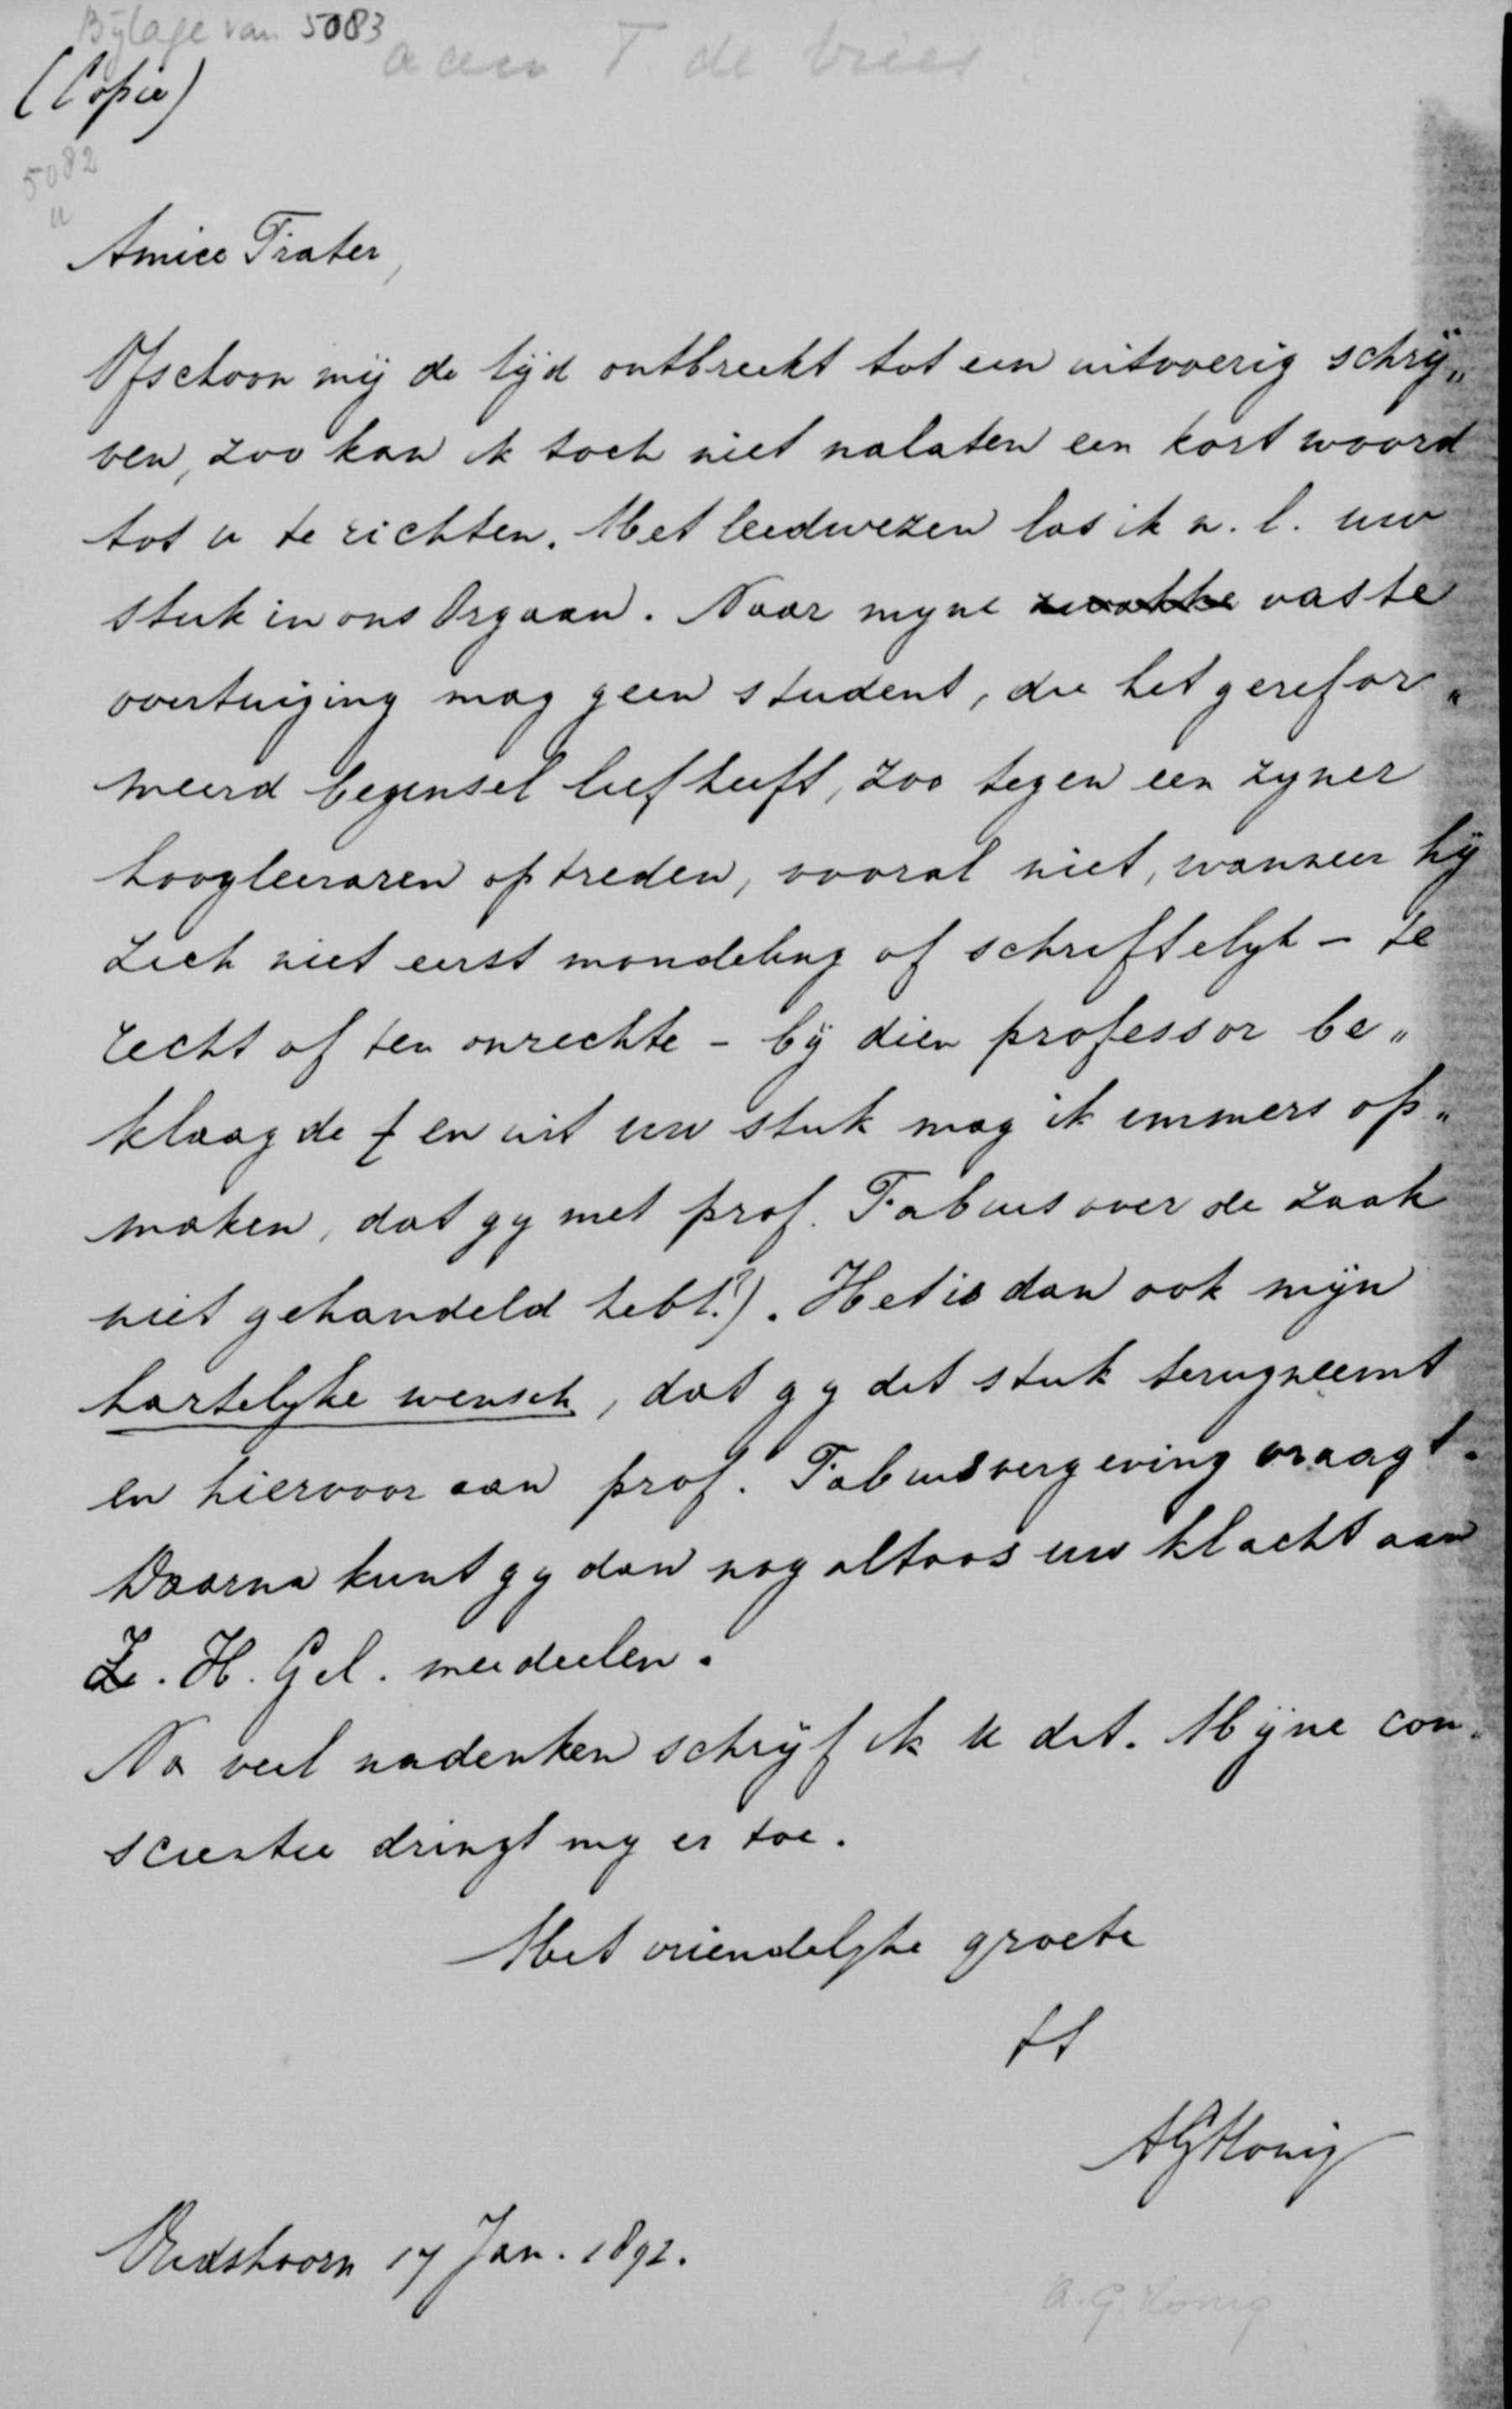 Bijlage van 5083
aan T. de Vries.
(Copie)
5082
a
Amice Frater,
Ofschoon mij de tijd ontbreekt tot een uitvoerig schrij„
ven, zoo kan ik toch niet nalaten een kort woord
tot u te richten. Met leedwezen las ik n.l. uw
stuk in ons Orgaan. Naar myne zwakke vaste
overtuiging mag geen student, die het gerefor„
meerd beginsel liefheeft, zoo tegen een zyner
hoogleeraren optreden, vooral niet, wanneer hij
zich niet eerst mondeling of schriftelyk - te
recht of ten onrechte - bij dien professor be„
klaagde (en uit uw stuk mag ik immers op„
maken, dat gy met prof. Fabius over de zaak
niet gehandeld hebt?). Het is dan ook mijn
hartelyke wensch, dat gy dit stuk terugneemt
en hiervoor aan prof. Fabius vergeving vraagt.
Daarna kunt gy dan nog altoos uw klacht aan
Z. H. Gel. meedeelen.
Na veel nadenken schrijf ik u dit. Mijne con„
scientie dringt my er toe.
Met vriendelyke groete
tt
AGHonig
Oudshoorn 17 Jan. 1892.
A.G. Honig